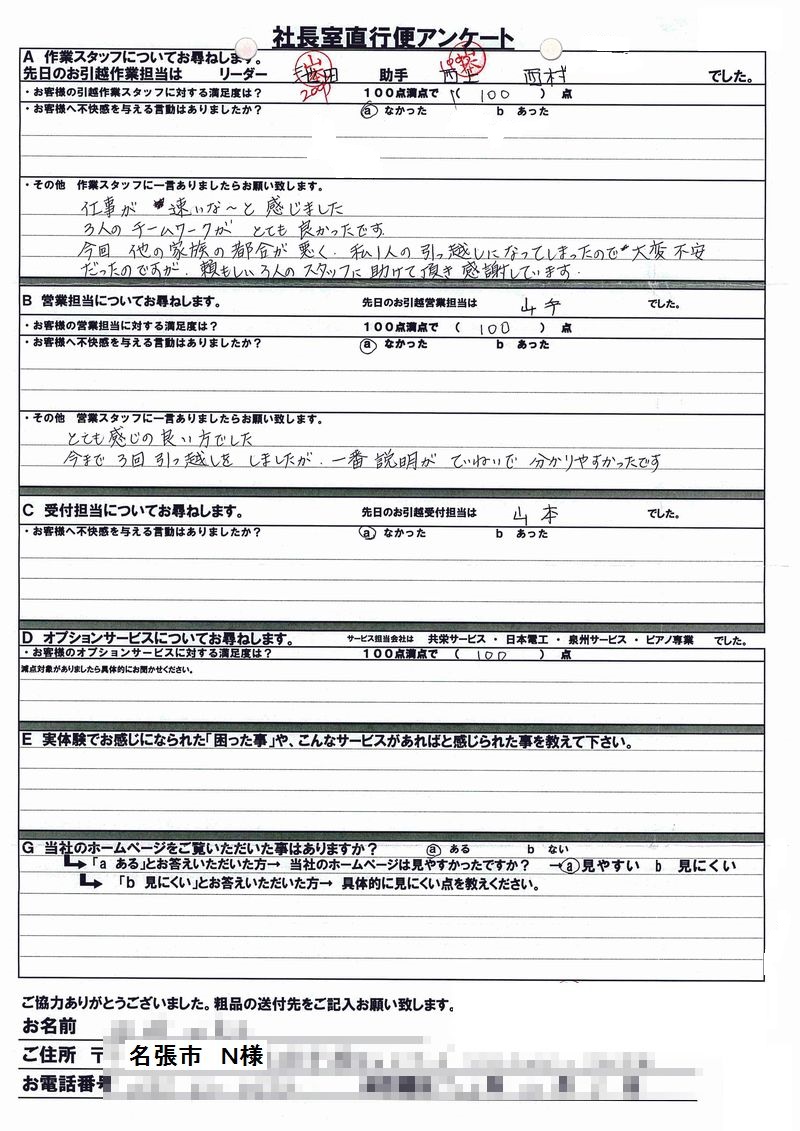 社長室直行便アンケート
A 作業スタッフについてお尋ねします。
先日のお引越作業担当は リーダー 助手 西村 でした。
・お客様の引越作業スタッフに対する満足度は? 100点満点で ( 100 ) 点
・お客様へ不快感を与える言動はありましたか? a なかった b あった
・その他 作業スタッフに一言ありましたらお願い致します。
仕事が 速いな～と 感じました
3人の チームワークが とても 良かったです.
今回 他の家族の都合が 悪く. 私1人の 引っ越しになってしまったので 大変 不安
だったのですが. 頼もしい 3人の スタッフに 助けて頂き 感謝しています.
B 営業担当についてお尋ねします。 先日のお引越営業担当は でした。
・お客様の営業担当に対する満足度は? 100点満点で ( 100 ) 点
・お客様へ不快感を与える言動はありましたか? a なかった b あった
・その他 営業スタッフに一言ありましたらお願い致します。
とても 感じの 良い 方でした
今まで 3回 引っ越しを しましたが. 一番 説明が ていねいで 分かりやすかったです
C 受付担当についてお尋ねします。 先日のお引越受付担当は 山本 でした。
・お客様へ不快感を与える言動はありましたか? a なかった b あった
D オプションサービスについてお尋ねします。 サービス担当会社は 共栄サービス ・ 日本電工 ・ 泉州サービス ・ ピアノ専業 でした。
・お客様のオプションサービスに対する満足度は? 100点満点で ( 100 ) 点
減点対象がありましたら具体的にお聞かせください。
E 実体験でお感じになられた「困った事」や、こんなサービスがあればと感じられた事を教えて下さい。
G 当社のホームページをご覧いただいた事はありますか? a ある b ない
「a ある」とお答えいただいた方→ 当社のホームページは見やすかったですか? →a 見やすい b 見にくい
「b 見にくい」とお答えいただいた方→ 具体的に見にくい点を教えください。
ご協力ありがとうございました。粗品の送付先をご記入お願い致します。
お名前
ご住所 〒 名張市 N様
お電話番号